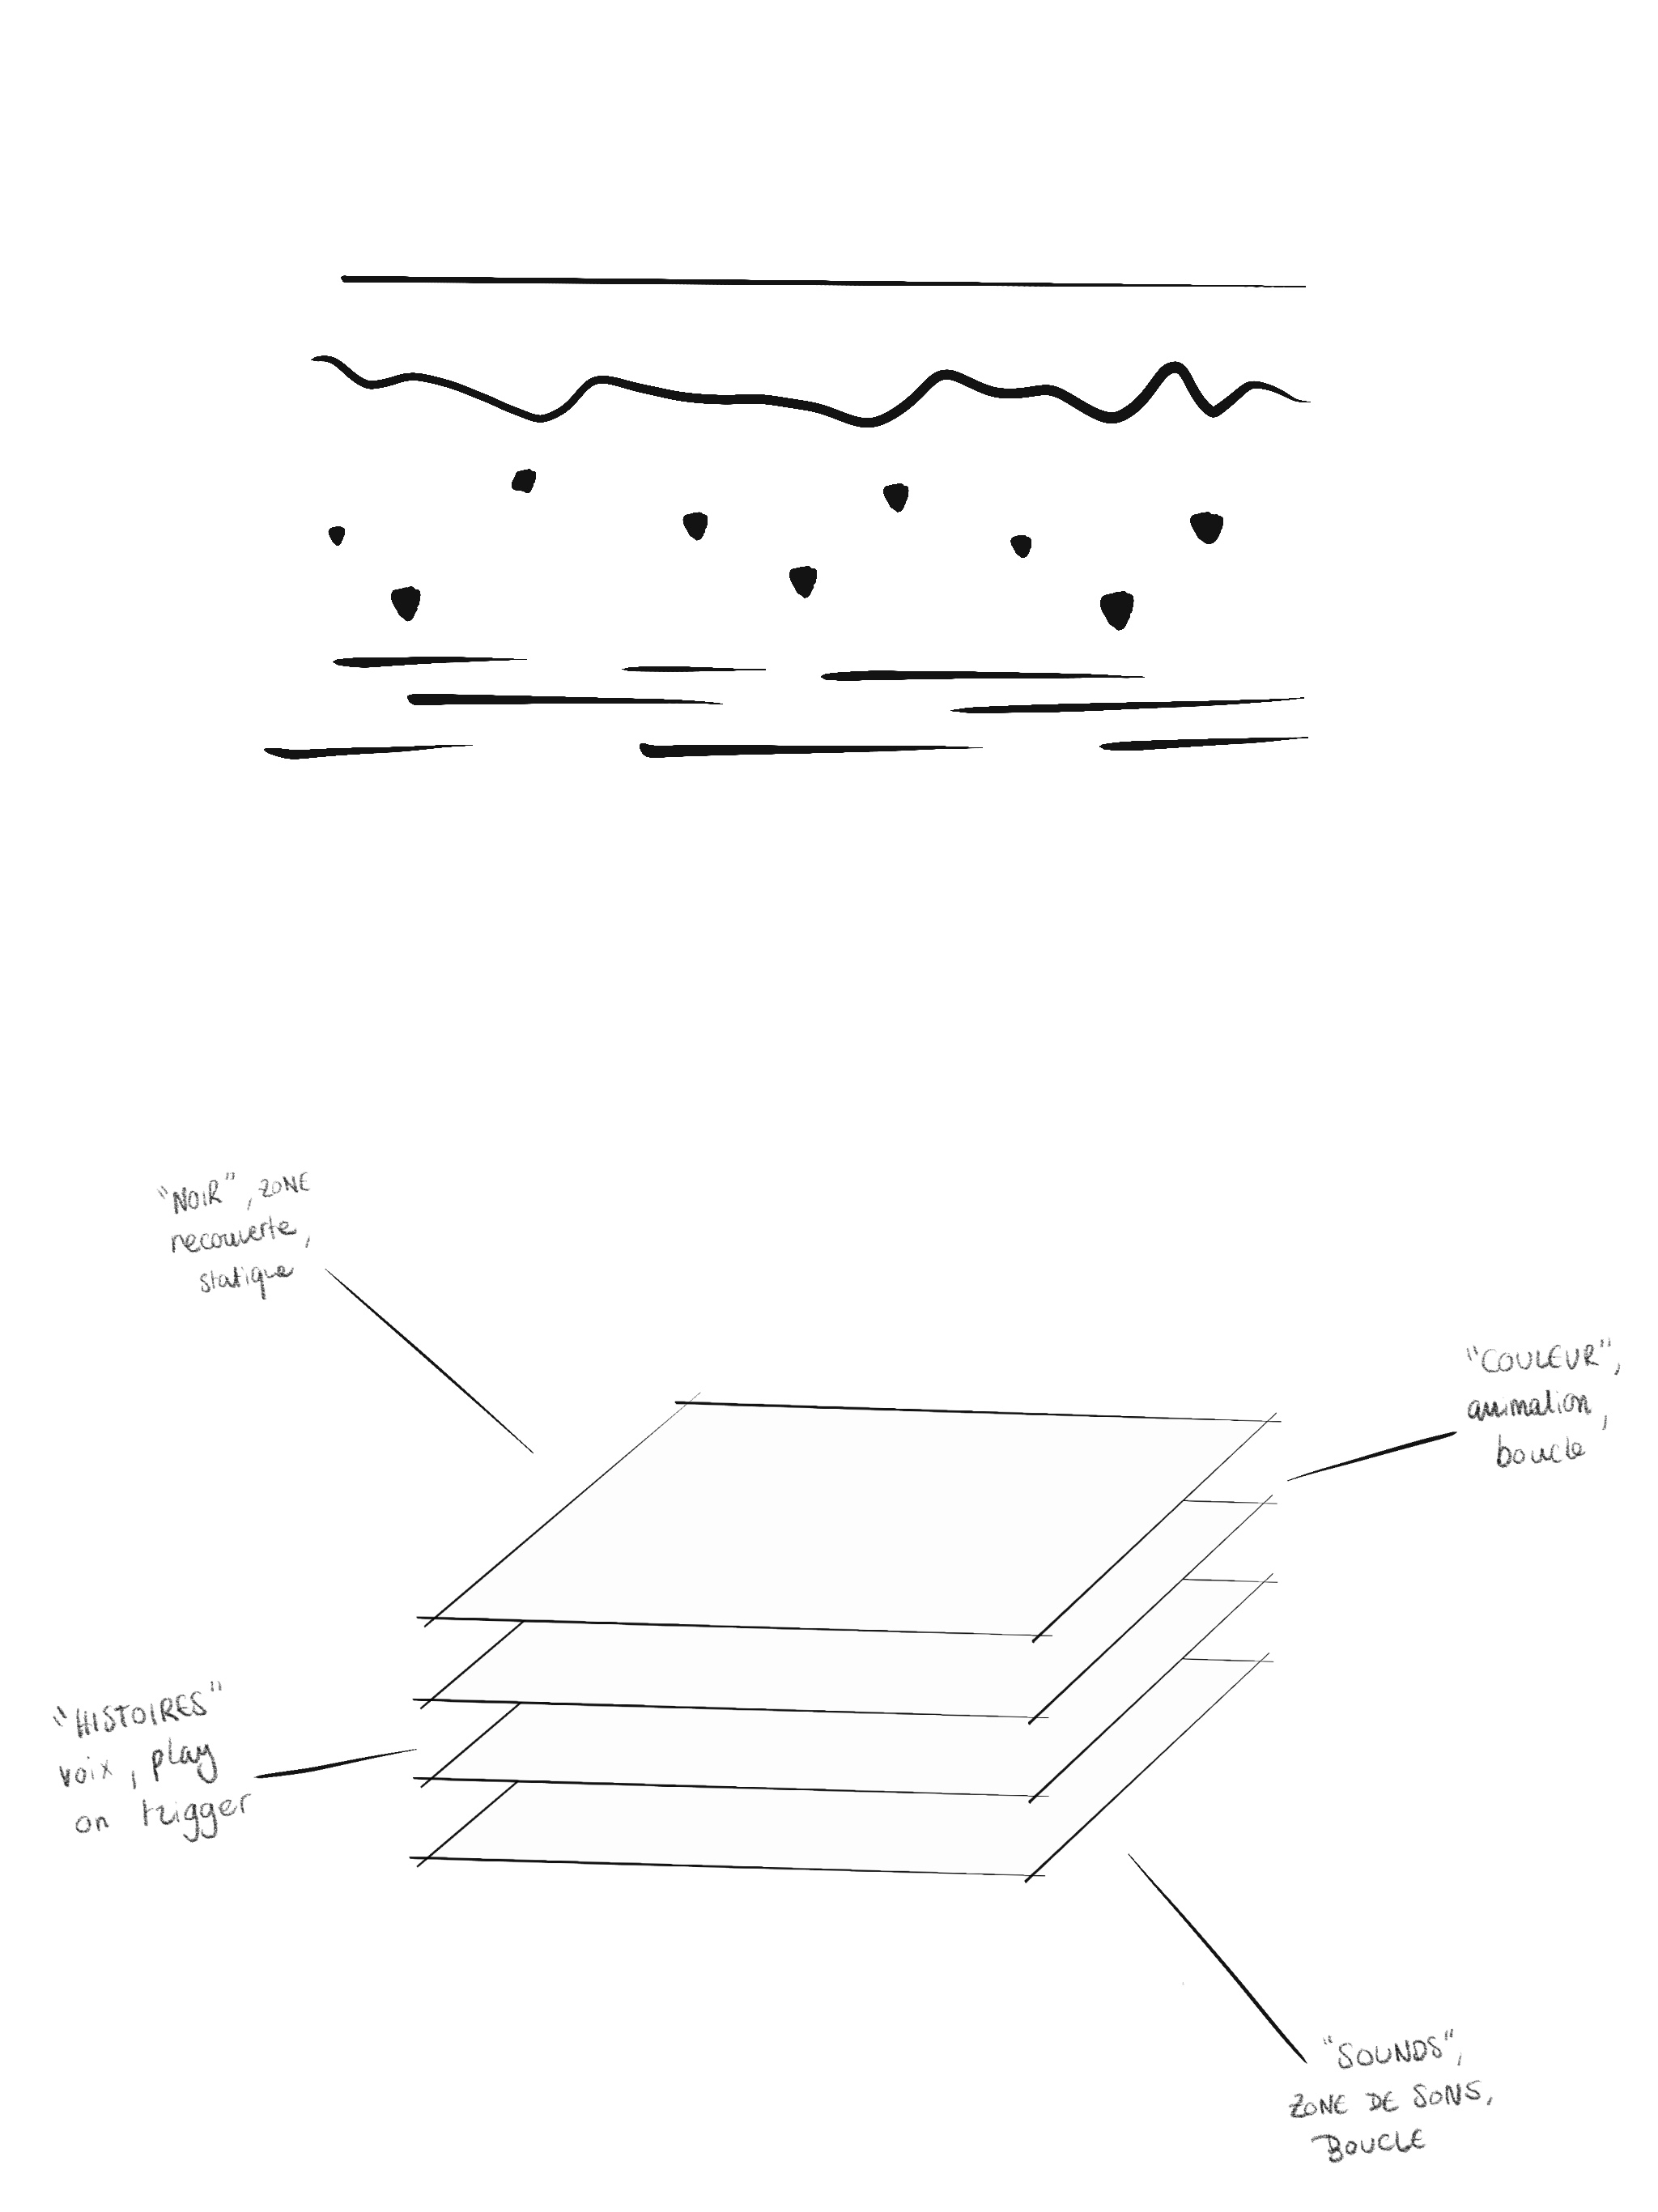 "NOIR", ZONE
recouverte,
statique
"COULEUR",
animation,
boucle
"HISTOIRES"
voix, play
on trigger
"SOUNDS",
ZONE DE SONS,
BOUCLE